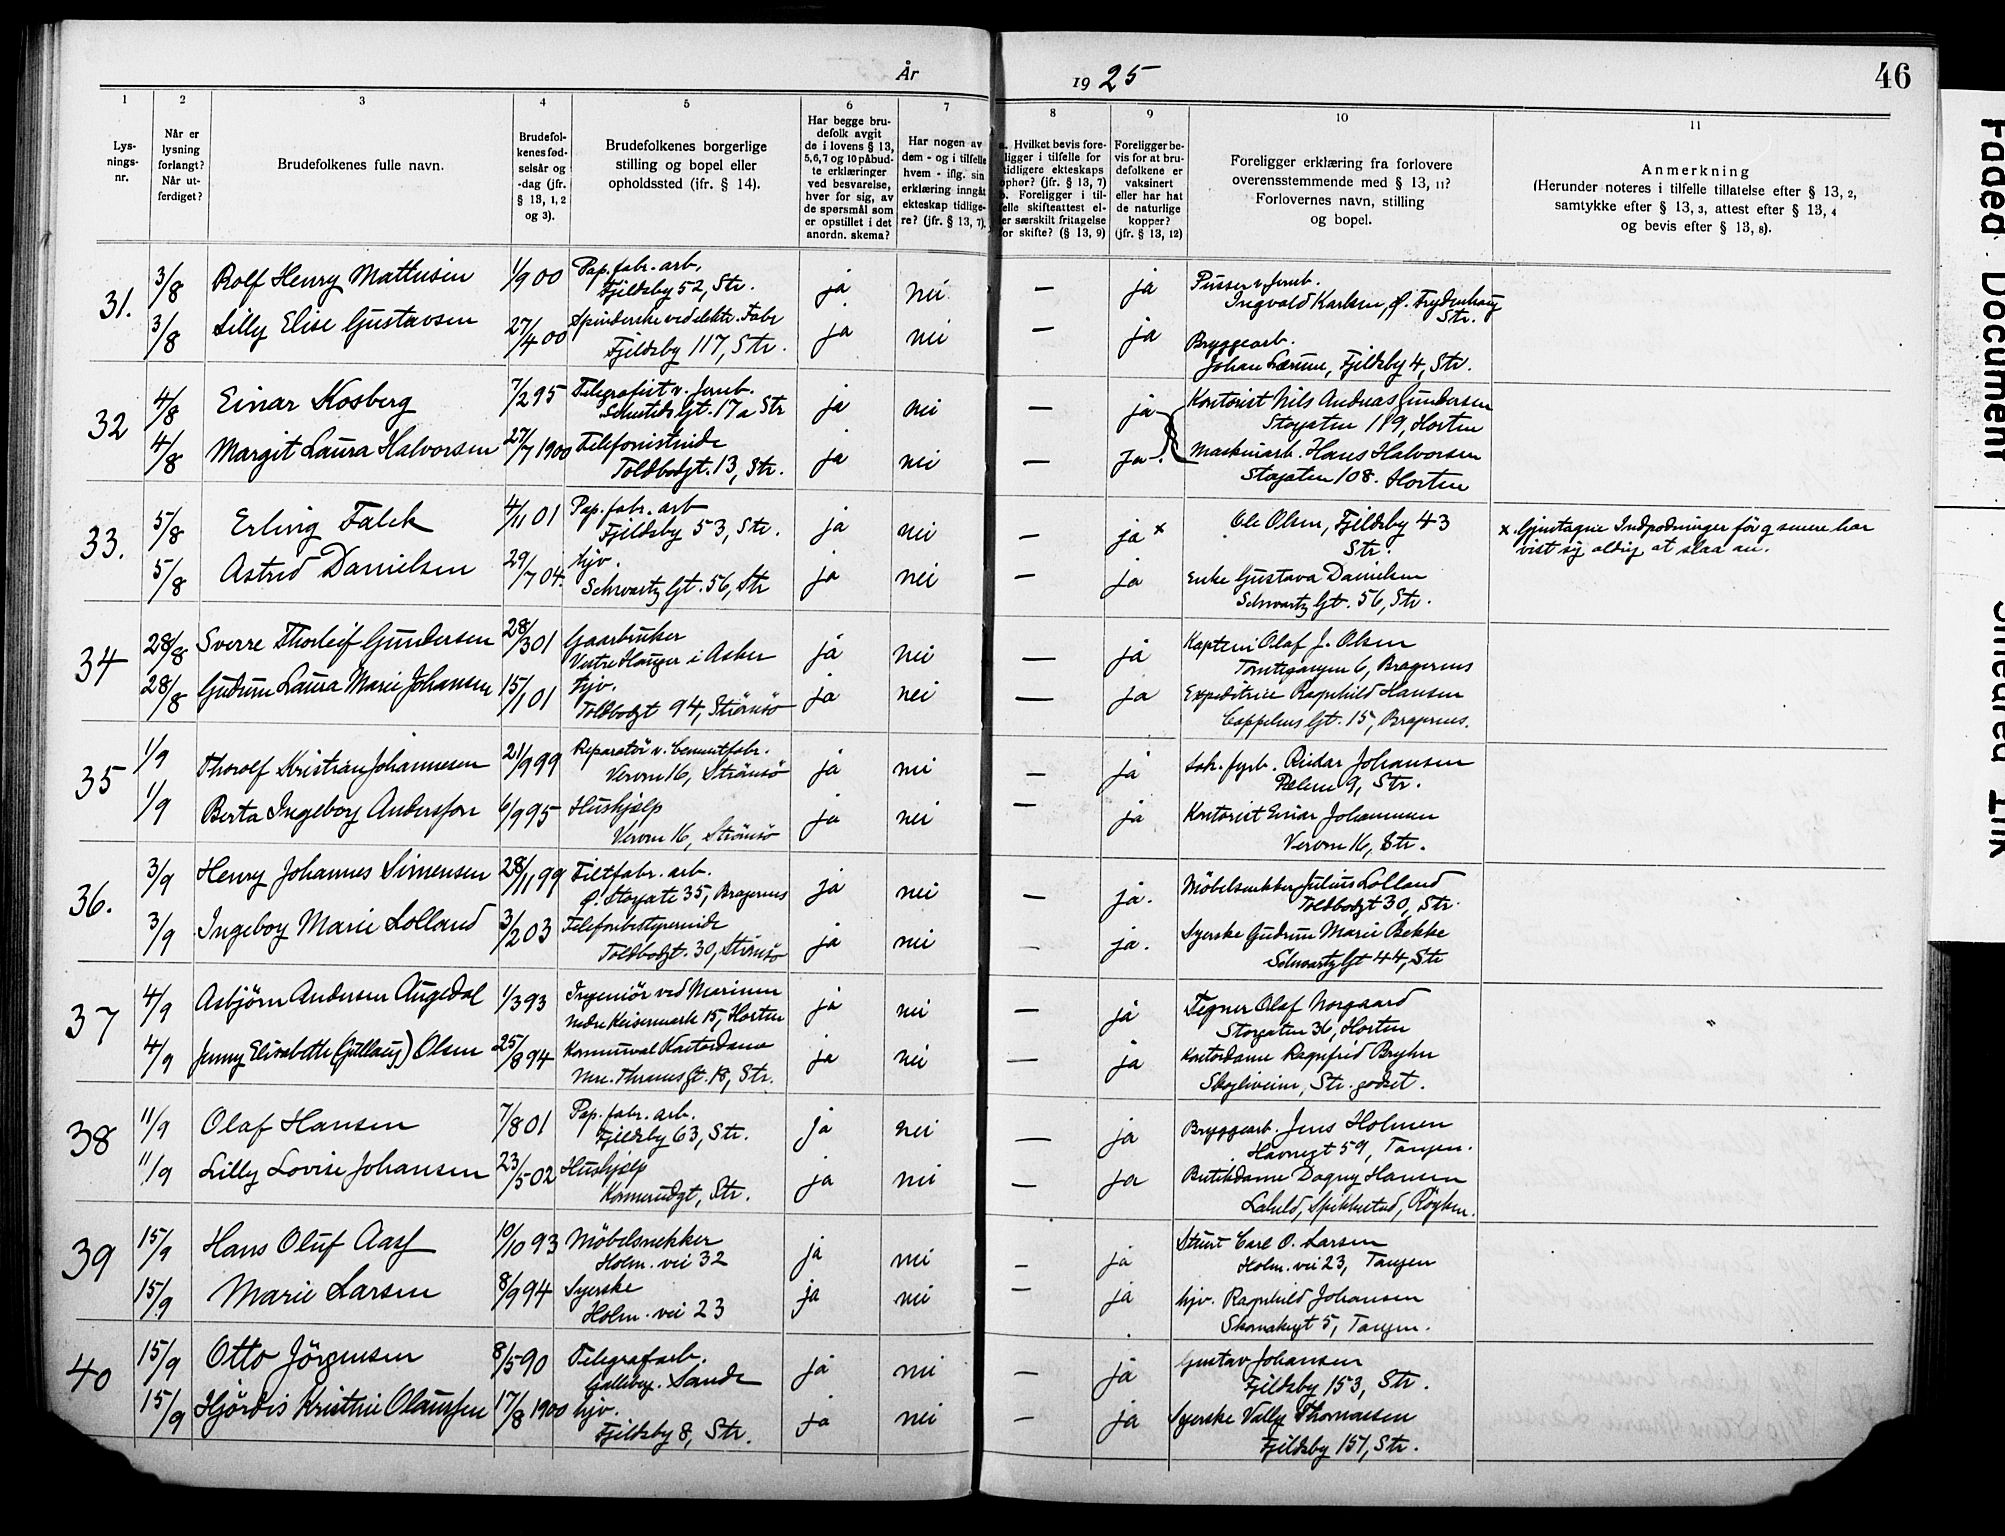 År 1925
46
1 2 3 4 5 6 7 8 9 10 11
Lysningsnr.
Når er lysning forlangt? Når utferdiget?
Brudefolkenes fulle navn.
Brudefolkenes fødselsår og -dag (jfr. § 13, 1, 2 og 3).
Brudefolkenes borgerlige stilling og bopel eller opholdssted (jfr. § 14).
Har begge brudefolk avgit de i lovens § 13, 5, 6, 7 og 10 påbudte erklæringer ved besvarelse, hver for sig, av de spørsmål som er opstillet i det anordn. skema?
Har nogen av dem - og i tilfelle hvem - iflg. sin erklæring inngåt ekteskap tidligere? (jfr. § 13, 7).
a. Hvilket bevis foreligger i tilfelle for tidligere ekteskaps ophør? (jfr. § 13, 7) b. Foreligger i tilfelle skifteattest eller særskilt fritagelse for skifte? (§ 13, 9)
Foreligger bevis for at brudefolkene er vaksinert eller har hat de naturlige kopper? (jfr. § 13, 12)
Foreligger erklæring fra forlovere overensstemmende med § 13, 11? Forlovernes navn, stilling og bopel.
Anmerkning (Herunder noteres i tilfelle tillatelse efter § 13, 2, samtykke efter § 13, 3, attest efter § 13, 4 og bevis efter § 13, 8).
31. 3/8 Rolf Henry Mathisen 1/9 00 Pap. fabr. arb. Fjeldsby 52, Str. ja nei — ja Pusser v. Jernb. Ingvald Karlsen, Ø. Frydenhaug Str.
3/8 Lilly Elise Gustavsen 27/4 00 Spinderske ved elektr. Fabr Fjeldsby 117, Str. ja nei — ja Bryggearb. Johan Lærum, Fjeldsby 4, Str.
32 4/8 Einar Kosberg 7/2 95 Telegrafist v. Jernb. Gt. 17a Str ja nei — ja Kontorist Nils Andreas Gundersen Storgaten 119, Horten
4/8 Margit Laura Halvorsen 27/7 1900 Telefonistinde Toldbodgt. 13, Str. ja nei — ja. Maskinarb. Hans Halvorsen Storgaten 108. Horten
33. 5/8 Erling Falck 4/11 01 Pap. fabr. arb Fjeldsby 53, Str. ja nei — ja x Ole Olsen, Fjeldsby 43 Str. x. Gjentagne Indpodninger før og senere har vist sig aldrig at slaa an.
5/8 Astrid Danielsen 29/7 04. hjv. Schwartz Gt. 56, Str ja nei — ja Enke Gustava Danielsen Schwartz Gt. 56, Str.
34 28/8 Sverre Thorleif Gundersen 28/3 01 Gaarbruker Vestre Hauger i Asker ja nei — ja Kaptein Olaf J. Olsen Tomtegangen 6, Bragernes
28/8 Gudrun Laura Marie Johansen 15/1 01 hjv. Toldbodgt 94, Strömsö ja nei — ja Expeditrice Ragnhild Hansen Cappelens Gt. 15, Bragernes.
35 1/9 Thorolf Kristian Johannesen 21/9 99 Reparatör v. Cementfabr. Vervm 16, Strömsö ja nei — ja Lok. fyrb. Reidar Johansen 9, Str.
1/9 Berta Ingeborg Andersson 6/9 95 Hushjelp Vervm 16, Strömsö ja nei — ja Kontorist Einar Johannesen Vervm 16, Str.
36. 3/9 Henry Johannes Simensen 28/11 99 Filtfabr. arb. Ø. Storgate 35, Bragernes ja nei — ja. Möbelsnekker Julius Lolland Toldbodgt 30, Str.
3/9 Ingeborg Marie Lolland 3/2 03 Telefonbestyrerinde Toldbodgt. 30, Strömsö ja nei — ja. Syerske Gudrun Marie Bekke Schwartz Gt 44, Str
37 4/9 Asbjörn Andersen Augedal 1/3 93 Ingeniör ved Marinen Nedre Keisermark 15, Horten ja nei — ja Tegner Olaf Norgaard Storgaten 36, Horten
4/9 Jenny Elisabeth (Gullaug) Olsen 25/8 94 Kommunal Kontordame Mrc. Thranes Gt. 18, Str. ja nei — ja Kontordame Ragnfrid Bryhn Skogliveien, Str. godset.
38 11/9 Olaf Hansen 7/8 01 Pap. fabr. arb. Fjeldsby 63, Str. ja nei — ja Bryggearb. Jens Holmen Havnegt 59, Tangen.
11/9 Lilly Lovise Johansen 23/5 02 Hushjelp Konnerudgt, Str. ja nei — ja Butikdame Dagny Hansen Spikkestad, Röyken.
39 15/9 Hans Oluf Aas 10/10 93 Möbelsnekker Holm. vei 32 ja nei — ja Stuert Carl O. Larsen Holm. vei 23, Tangen
15/9 Marie Larsen 8/9 94 Syerske Holm. vei 23 ja nei — ja hjv. Ragnhild Johansen Skomakergt 5, Tangen.
40 15/9 Otto Jörgensen 8/5 90 Telegrafarb. Galleberg. Sande ja nei — ja Gustav Johansen Fjeldsby 153, Str.
15/9 Hjördis Kristine Olaussen 17/8 1900 hjv. Fjeldsby 8, Str. ja nei — ja Syerske Vally Thomassen Fjeldsby 151, Str.
Faded Document
Smeared Ink